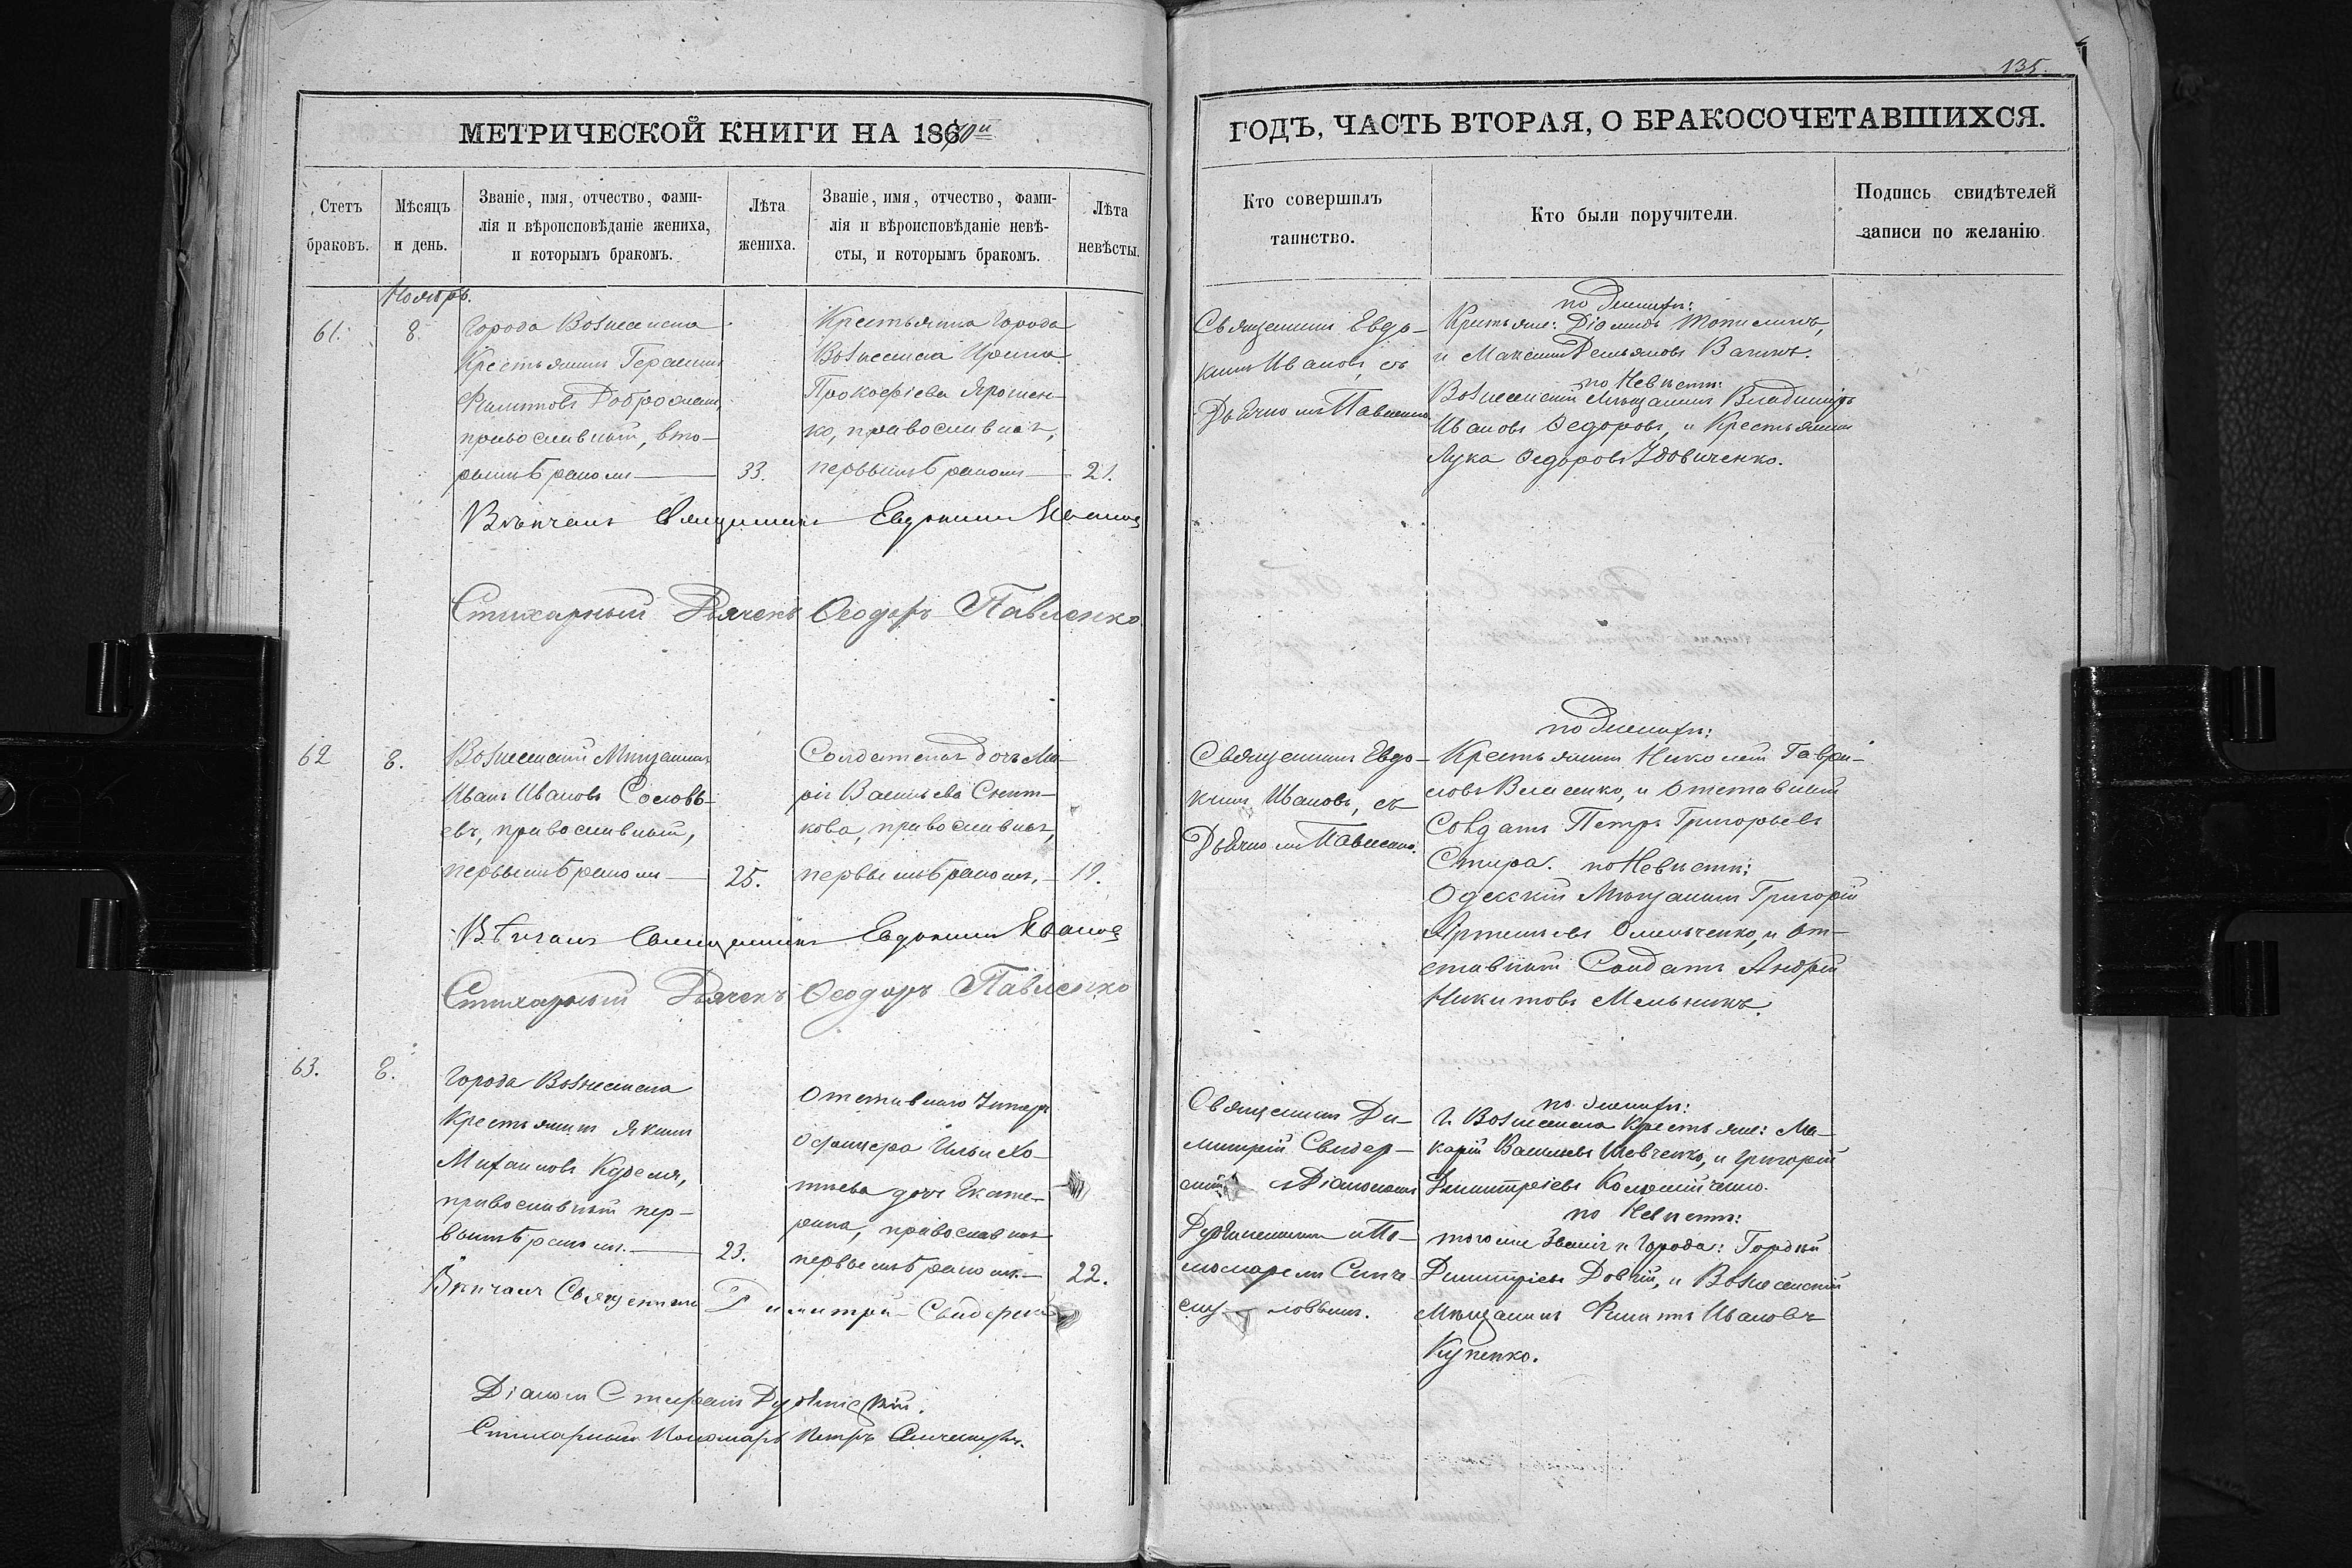 135.
МЕТРИЧЕСКОЙ КНИГИ НА 1870й
ГОДЪ, ЧАСТЬ ВТОРАЯ, О БРАКОСОЧЕТАВШИХСЯ.
Счетъ
браковъ.
Мѣсяцъ
и день.
Званіе, имя, отчество, фами-
лія и вѣроисповѣданіе жениха,
и которымъ бракомъ.
Лѣта
жениха.
Званіе, имя, отчество, фами-
лія и вѣроисповѣданіе невѣ-
сты, и которымъ бракомъ.
Лѣта
невѣсты.
Кто совершилъ
таинство.
Кто были поручители.
Подпись свидѣтелей
записи по желанію
Ноябрь.
61.
8.
Города Вознесенска
Крестьянинъ Герасимъ
Филиповъ
православный, вто-
рымъ бракомъ
33.
Крестьянка Города
Вознесенска Ирина
Прокофіева Ярошен-
ко, православная,
первымъ бракомъ
21.
Священникъ Евдо-
кимъ Ивановъ, съ
Дьячкомъ Павленко.
по Женихѣ:
Крестьяне: Діомидъ
и Максимъ Демьяновъ
по Невѣстѣ:
Вознесенскій Мѣщанинъ Владиміръ
Ивановъ Ѳедоровъ, и Крестьянинъ
Лука Ѳедоровъ Удовиченко.
Вѣнчалъ Священникъ Евдокимъ Ивановъ
Стихарный Дьячекъ Ѳеодоръ Павленко
62
8.
Вознесенскій Мѣщанинъ
Иванъ Ивановъ Соловь-
евъ, православный,
первымъ бракомъ
25.
Солдатская дочь Ма-
рія Васильева Снит-
кова, православная,
первымъ бракомъ,
19.
Священникъ Евдо-
кимъ Ивановъ, съ
Дьячкомъ Павленко.
по Женихѣ:
Крестьянинъ Николай Гаври-
ловъ Власенко, и Отставный
Солдатъ Петръ Григорьевъ
Стира. по Невѣстѣ:
Одесскій Мѣщанинъ Григорій
Артемьевъ Омельченко, и От-
ставный Солдатъ Андрей
Никитовъ Мельникъ.
Вѣнчалъ Священникъ Евдокимъ Ивановъ
Стихарный Дьячекъ Ѳеодоръ Павленко
63.
8.
Города Вознесенска
Крестьянинъ Якимъ
Михаиловъ
православный пер-
вымъ бракомъ.
23.
Отставнаго Унтеръ
Офицера Ильи Хо-
тнева дочь Екате-
рина, православная
первымъ бракомъ.
22.
Священникъ Ди-
митрій Свидер-
скій съ Діакономъ
и По-
номаремъ
по Женихѣ:
Г. Вознесенска Крестьяне: Ма-
карій Васильевъ Шевченко, и Григорій
Димитріевъ Коломійченко.
по Невѣстѣ:
того же Званія и Города: Гордѣй
Димитріевъ Довгій, и Вознесенскій
Мѣщанинъ Филипъ Ивановъ
Куценко.
Вѣнчалъ Священникъ Димитрій Свидерскій
Діаконъ Стефанъ
Стихарный Пономарь Петръ